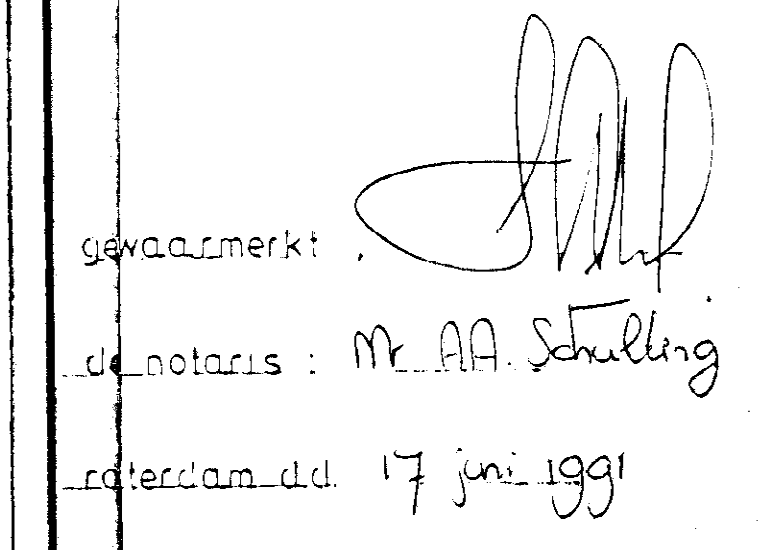 gewaarmerkt .
de notaris : Mr AA. Schulting
roterdam d.d. 17 juni 1991